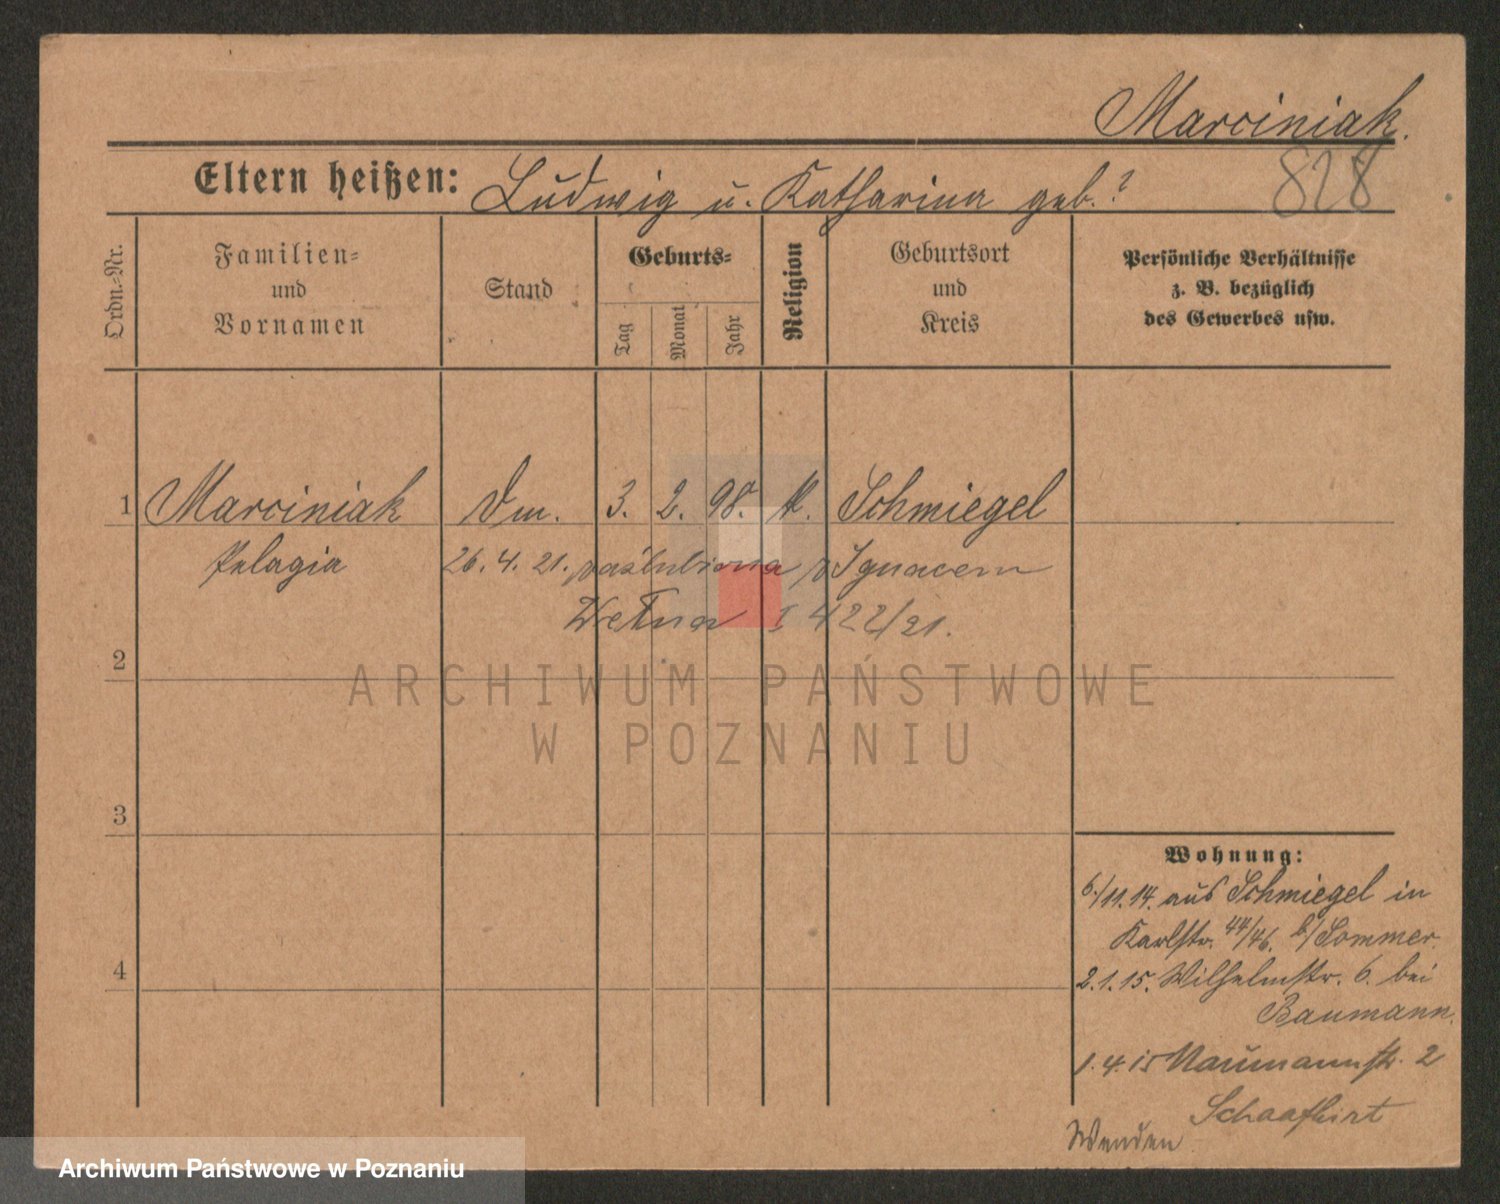 Marciniak.
828
Eltern heißen: Ludwig u. Katharina geb. ?
Ordn.-Nr.
Familien-
und
Vornamen
Stand
Geburts-
Tag
Monat
Jahr
Religion
Geburtsort
und
Kreis
Persönliche Verhältnisse
z. B. bezüglich
des Gewerbes usw.
1 Marciniak Dm. 3. 2. 98. k. Schmiegel
Pelagia 26. 4. 21. zaślubiona z Ignacem
Wełna I 422/21.
2
3
4
Wohnung:
6/11.14. aus Schmiegel in
Karlstr. 44/46. b/Sommer.
2.1.15. Wilhelmstr. 6. bei
Baumann.
1.4.15 Naumannstr. 2
Schaafhirt
Wenden
ARCHIWUM PAŃSTWOWE
W POZNANIU
Archiwum Państwowe w Poznaniu